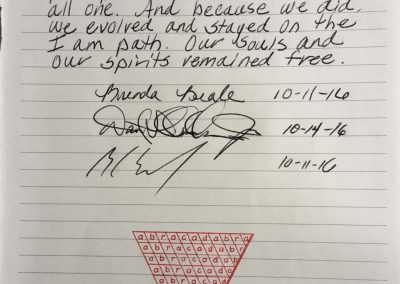 all one. And because we did,
we evolved and stayed on the
I am path. Our souls and
our spirits remained free.
Brenda Beale 10-11-16
10-14-16
10-11-16
abracadabra
abracadabr
abracadab
abracada
abracad